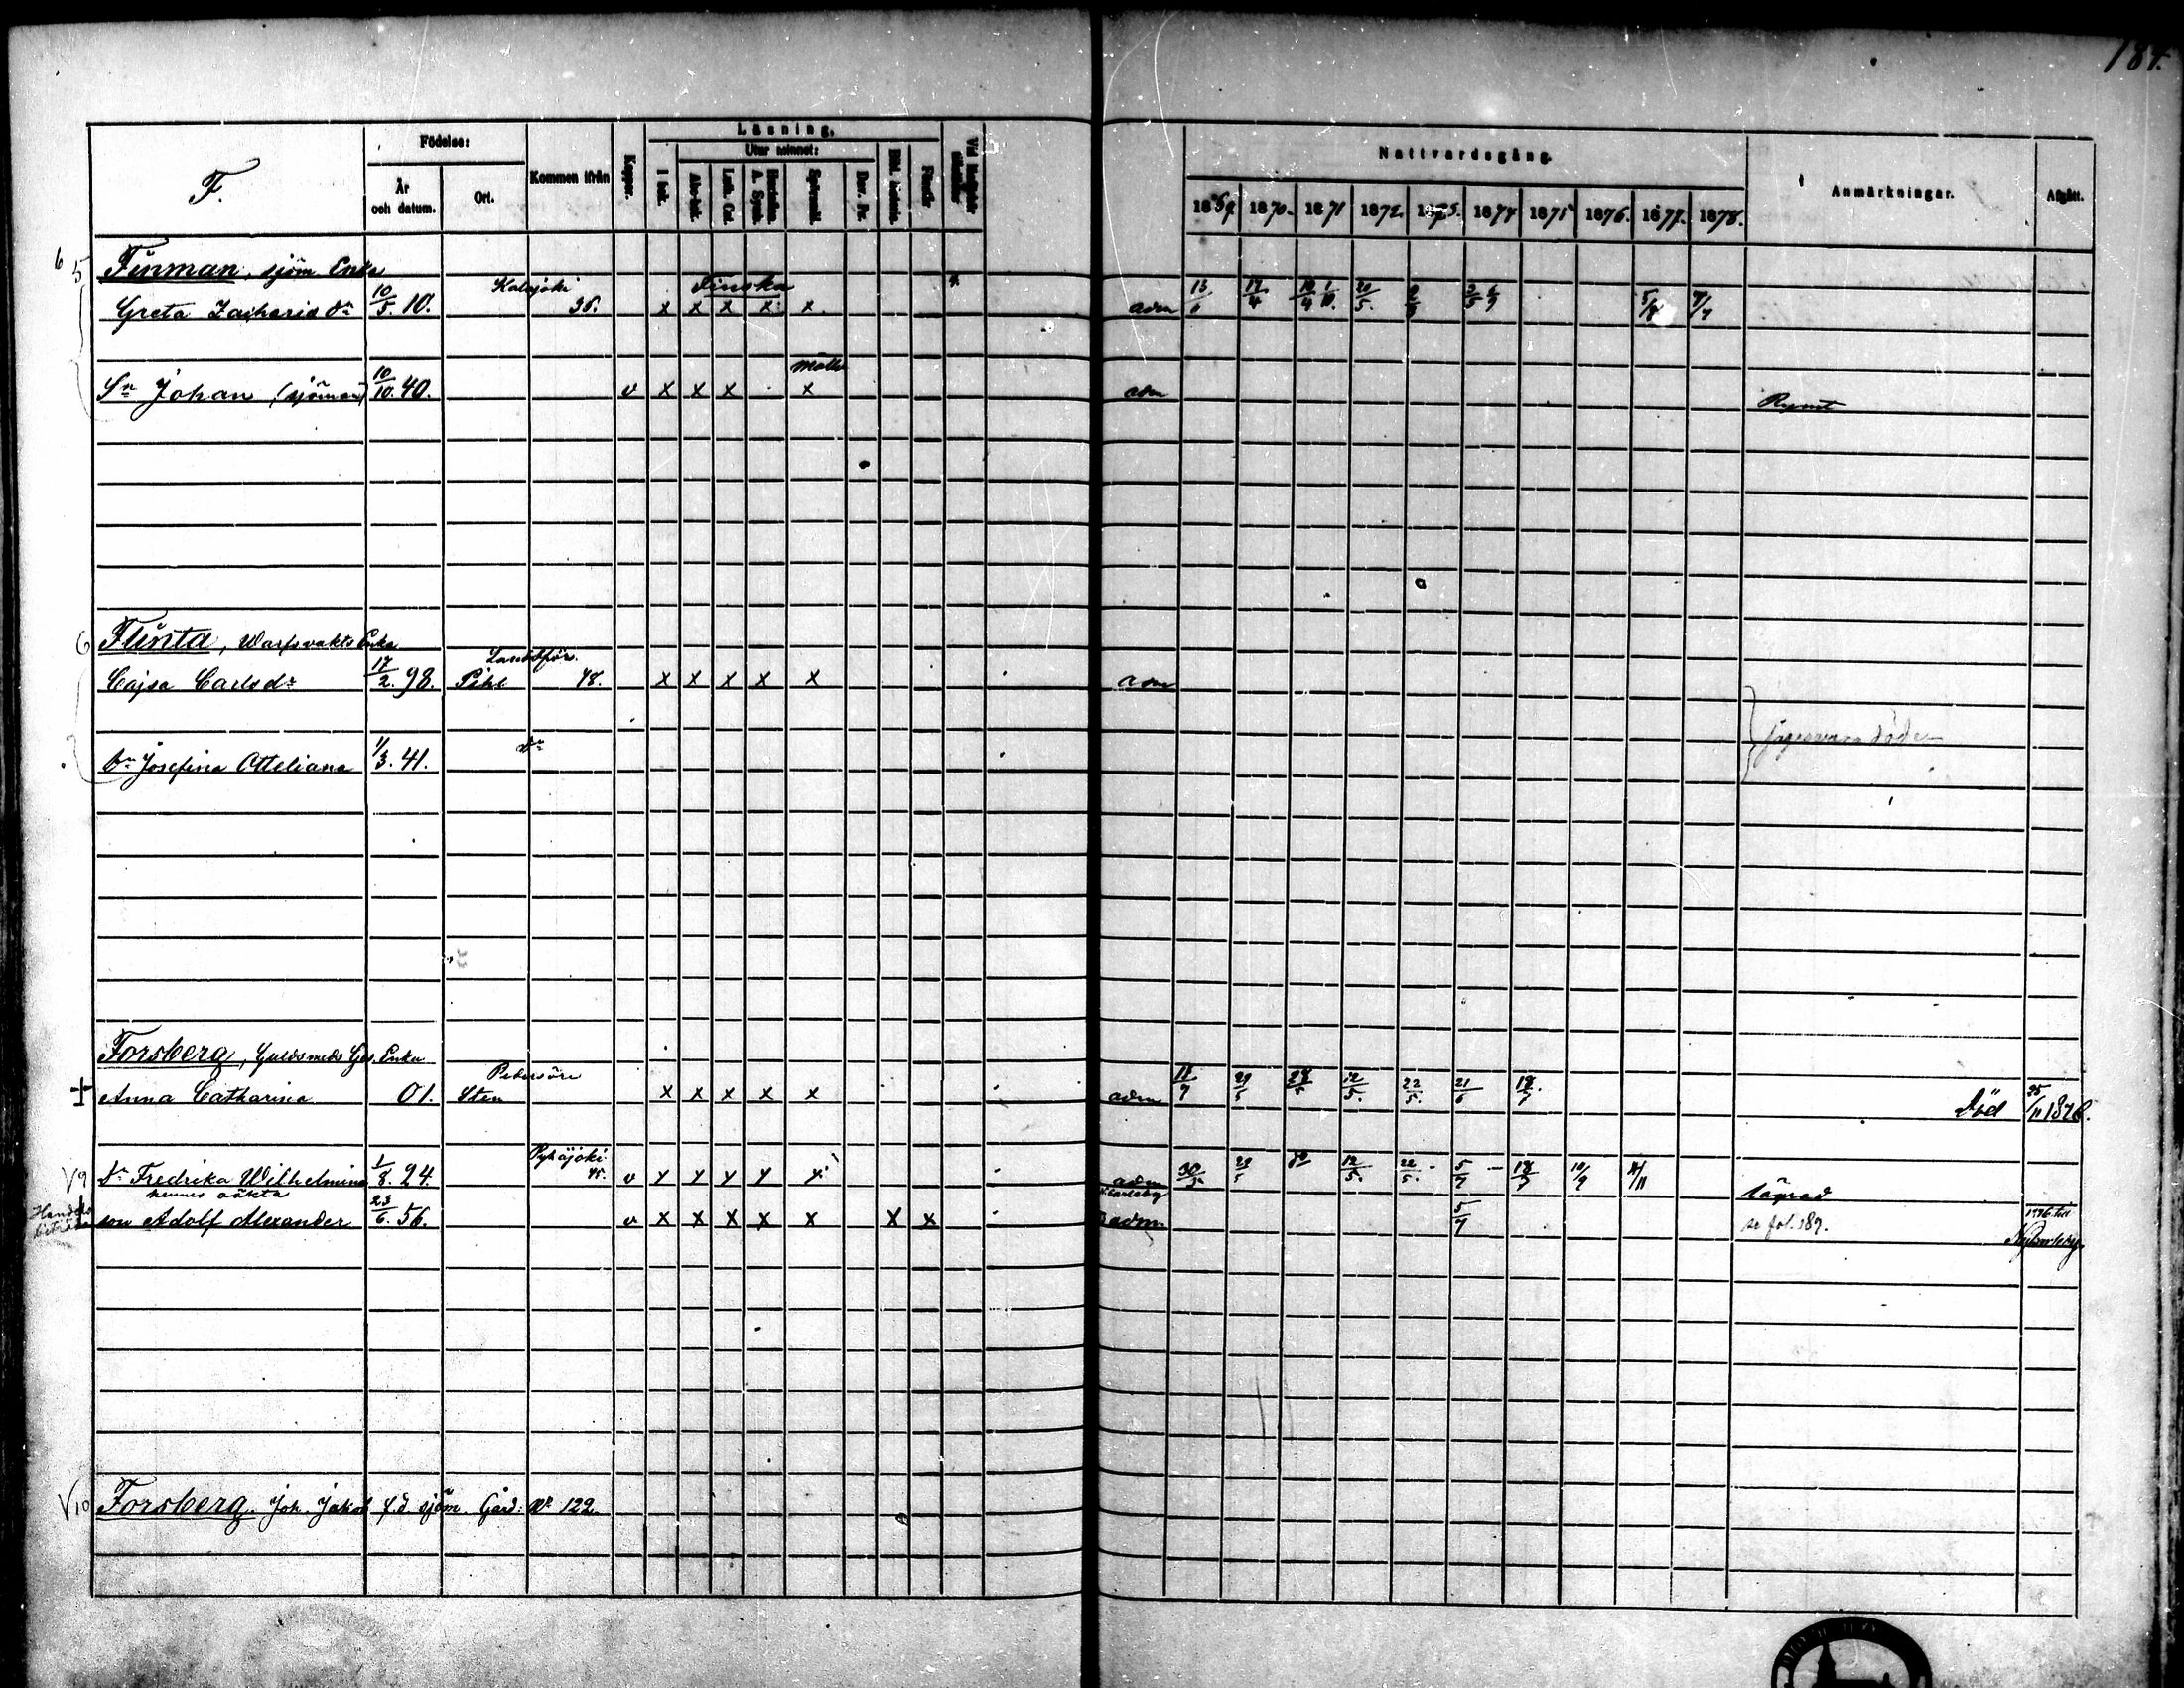 184.
F.
Födelse:
År och datum.
Ort.
Kommen ifrån
Koppor.
Läsning.
Utur minnet:
I bok.
Abc-bok.
Luth. Cat.
A. Symb.
Spörsmål.
Dav. Ps.
Bibl. historia.
Förstår
Nattvardsgång.
1869. 1870. 1871 1872. 1873. 1874 1875 1876. 1877. 1878.
Anmärkningar.
Afgått.
6 5 Finman, sjöm. Enka
Greta Zacharia dr 10/5. 10. Kalajoki 36. Finska x x x x x adm 13/6 17/4 10/4 1/10. 20/5.
Sn Johan (sjöman) 10/10. 40. v x x x x adm Rymt
6 Flinta, Warfsvakts Enka
Cajsa Carlsdr 17/2. 98. Pihl 48. x x x x x adm
Dr Josefina Otteliana 1/3. 41. Dr
Forsberg, Guldsmeds Ges. Enka
+ Anna Catharina 01. Pedersöre Sten x x x x x adm 11/7 29/5 28/5 12/5. 22/5. 21/6 18/7 Död 25/11 1876.
V9 Dr Fredrika Wilhelmina 1/8. 24. Pyhäjoki 45. v x x x x x adm 30/5 29/5 12/5. 22/5. 5/7 18/7 10/9 4/11
hennes oäkta
son Adolf Alexander 23/6. 56. v x x x x x x x adm. 5/7 se fol. 189. 1876 till
Nykarleby
V10 Forsberg. Joh. Jakob f.d sjöm. Gård: No 122.